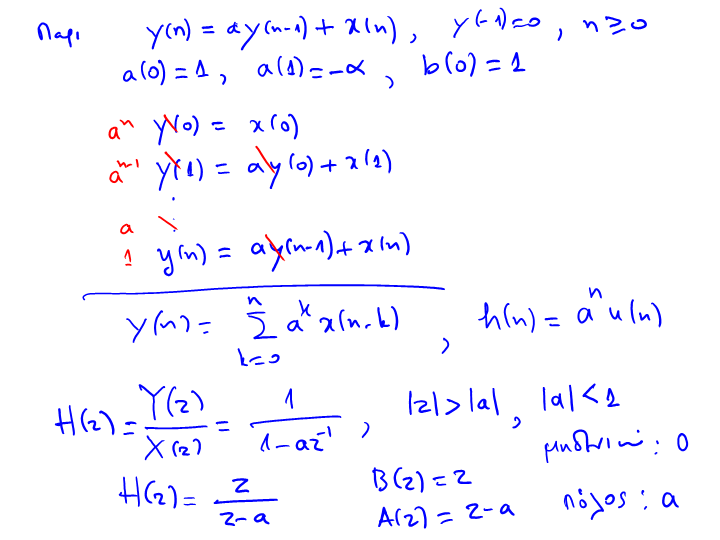 Παρ: y(n) = αy(n-1) + x(n), y(-1)=0, n≥0
a(0)=1, a(1)=-α, b(0)=1
aⁿ y(0) = x(0)
aⁿ⁻¹ y(1) = ay(0) + x(1)
a ⋮
1 y(n) = ay(n-1) + x(n)
y(n) = Σ_{k=0}^{n} a^k x(n-k), h(n) = aⁿ u(n)
H(z) = Y(z)/X(z) = 1/(1-az⁻¹), |z|>|a|, |a|<1
μηδενικό: 0
H(z) = z/(z-a) B(z) = z
A(z) = z-a πόλος: a